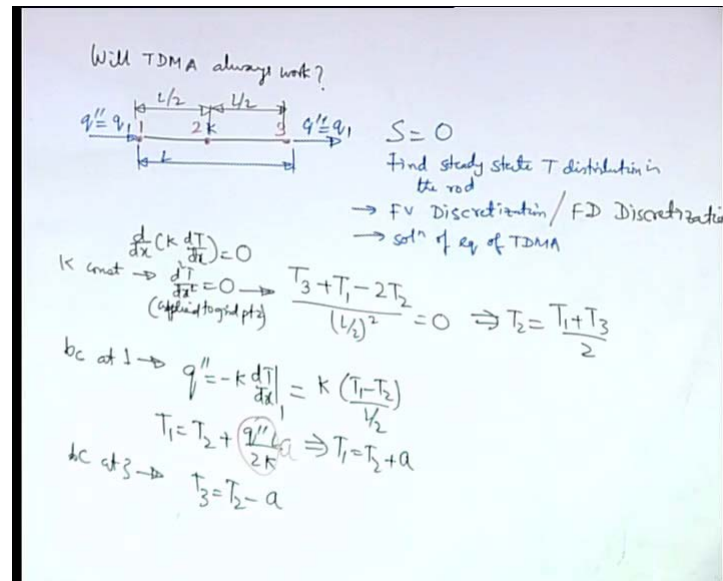 Will TDMA always work?
L/2 L/2
q''=q₁ 1 2 K 3 q''=q₁
L
S=0
Find steady state T distribution in
the rod
→ FV Discretization / FD Discretization
→ solⁿ of eq of TDMA
d/dx (K dT/dx)=0
K const → d²T/dx²=0 → (T₃+T₁-2T₂)/(L/2)² =0 ⇒ T₂= (T₁+T₃)/2
(applied to grid pt 2)
bc at 1 → q''=-K dT/dx|₁ = K (T₁-T₂)/(L/2)
T₁=T₂+ q''L/2K a ⇒ T₁=T₂+a
bc at 3 → T₃=T₂-a